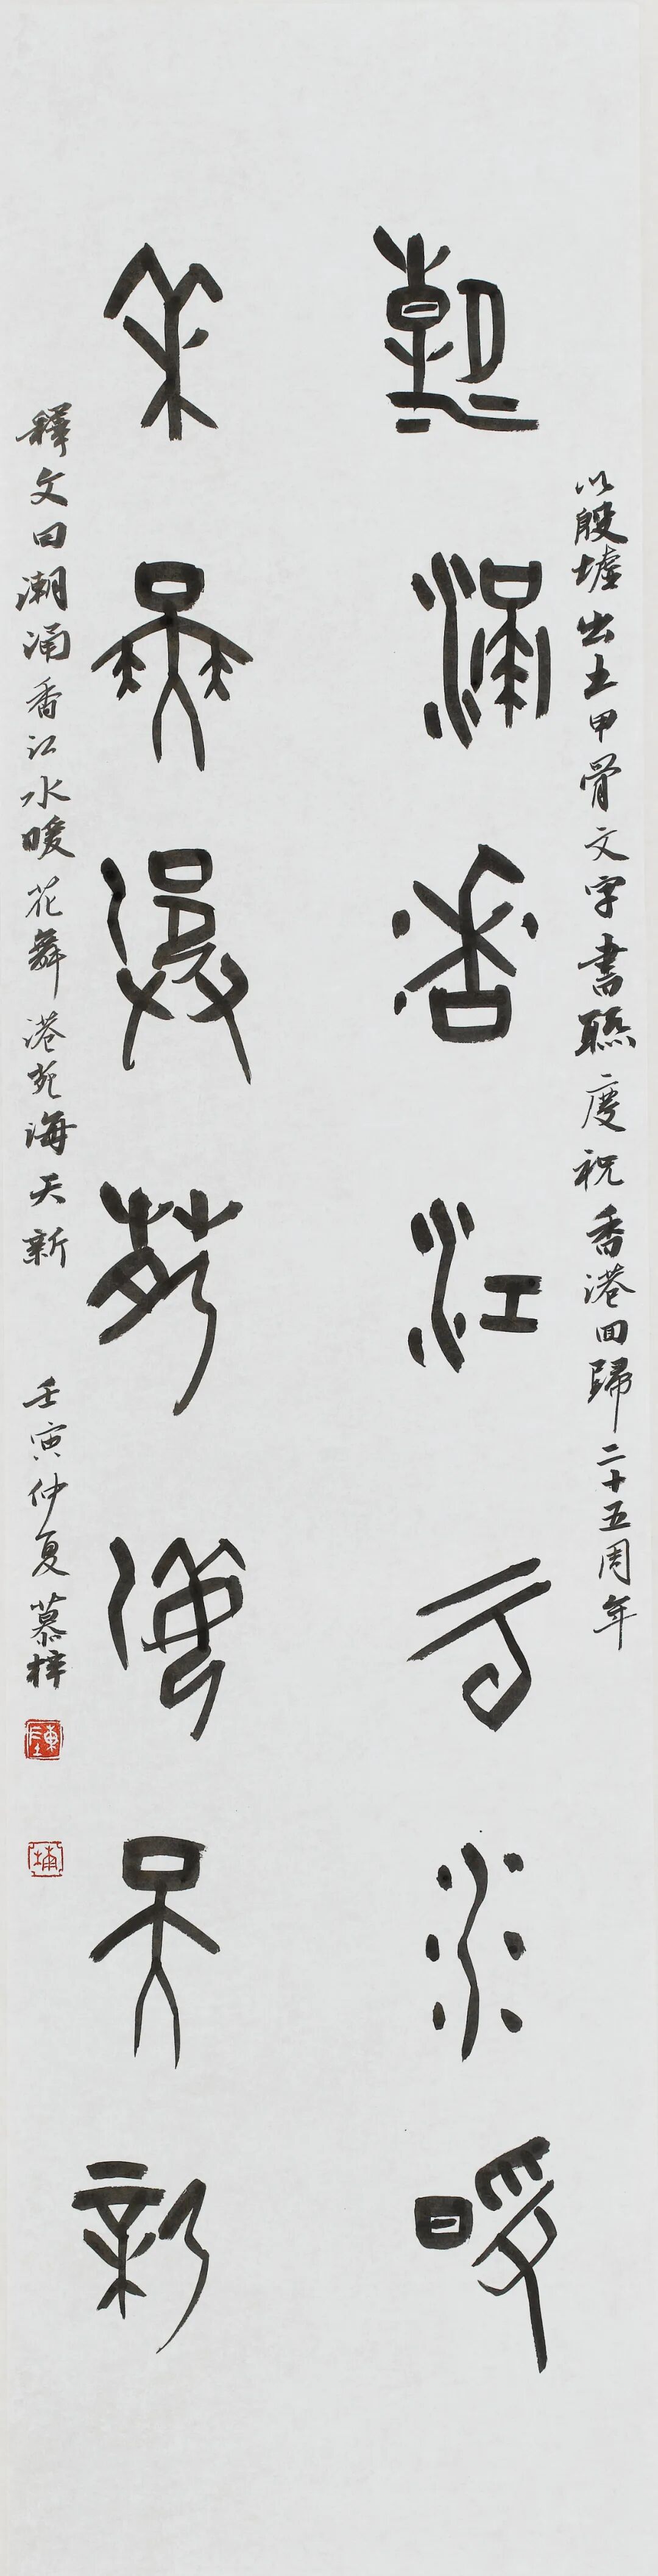 以殷墟出土甲骨文字書聯慶祝香港回歸二十五周年
潮涌香江云水暖
花舞港苑海天新
釋文曰潮涌香江水暖花舞港苑海天新 壬寅仲夏慕梓